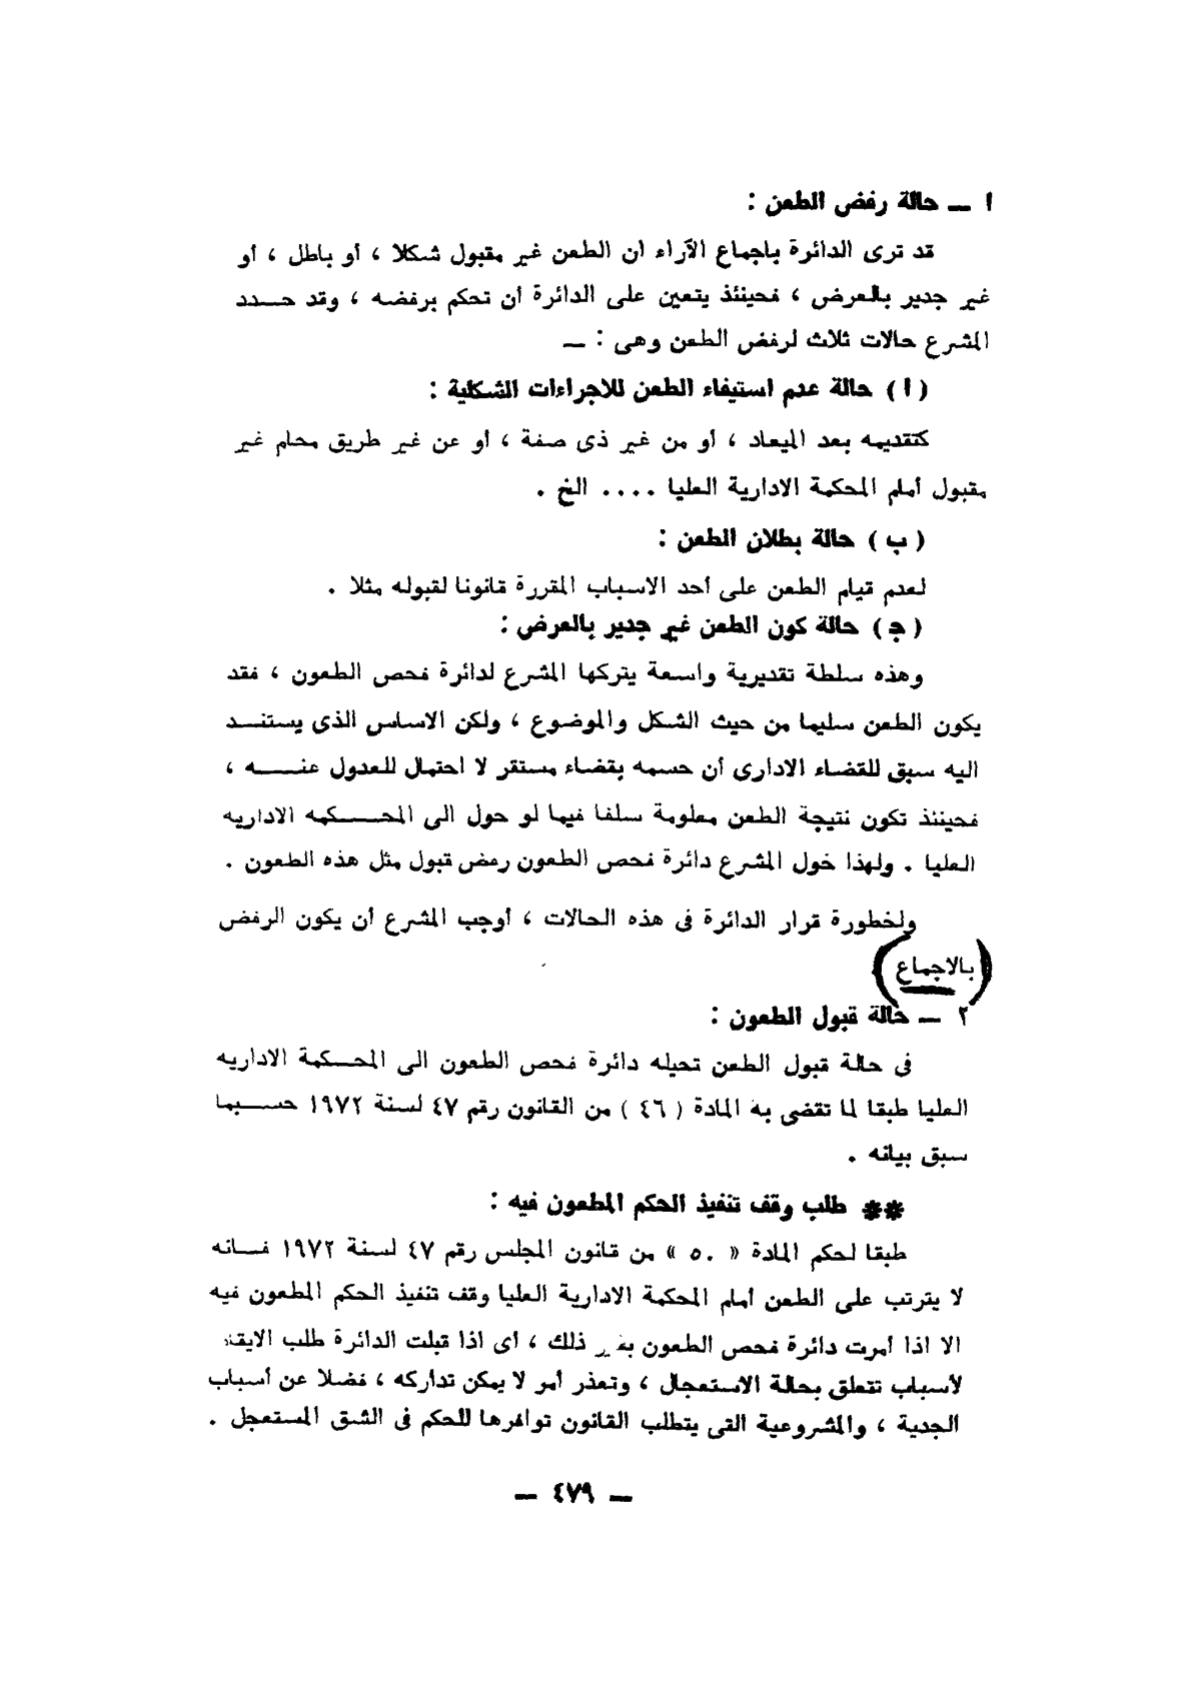 ١ — حالة رفض الطعن :
قد ترى الدائرة باجماع الآراء ان الطعن غير مقبول شكلا ، أو باطل ، أو
غير جدير بالعرض ، فحينئذ يتعين على الدائرة أن تحكم برفضه ، وقد حـــدد
المشرع حالات ثلاث لرفض الطعن وهى : —
( ا ) حالة عدم استيفاء الطعن للاجراءات الشكلية :
كتقديمه بعد الميعاد ، أو من غير ذى صفة ، أو عن غير طريق محام غير
مقبول أمام المحكمة الادارية العليا .... الخ .
( ب ) حالة بطلان الطعن :
لعدم قيام الطعن على أحد الاسباب المقررة قانونا لقبوله مثلا .
( ج ) حالة كون الطعن غير جدير بالعرض :
وهذه سلطة تقديرية واسعة يتركها المشرع لدائرة فحص الطعون ، فقد
يكون الطعن سليما من حيث الشكل والموضوع ، ولكن الاساس الذى يستنـــد
اليه سبق للقضاء الادارى أن حسمه بقضاء مستقر لا احتمال للعدول عنـــــه ،
فحينئذ تكون نتيجة الطعن معلومة سلفا فيما لو حول الى المحـــــكمه الاداريه
العليا . ولهذا خول المشرع دائرة فحص الطعون رفض قبول مثل هذه الطعون .
ولخطورة قرار الدائرة فى هذه الحالات ، أوجب المشرع أن يكون الرفض
(بالاجماع)
٢ — حالة قبول الطعون :
فى حالة قبول الطعن تحيله دائرة فحص الطعون الى المحـــكمة الاداريه
العليا طبقا لما تقضى به المادة ( ٤٦ ) من القانون رقم ٤٧ لسنة ١٩٧٢ حســـبما
سبق بيانه .
** طلب وقف تنفيذ الحكم المطعون فيه :
طبقا لحكم المادة « ٥٠ » من قانون المجلس رقم ٤٧ لسنة ١٩٧٢ فـــانه
لا يترتب على الطعن أمام المحكمة الادارية العليا وقف تنفيذ الحكم المطعون فيه
الا اذا أمرت دائرة فحص الطعون ذلك ، أى اذا قبلت الدائرة طلب
لأسباب تتعلق بحالة الاستعجال ، وتعذر أمر لا يمكن تداركه ، فضلا عن أسباب
الجدية ، والمشروعية التى يتطلب القانون توافرها للحكم فى الشق المستعجل .
— ٤٧٩ —